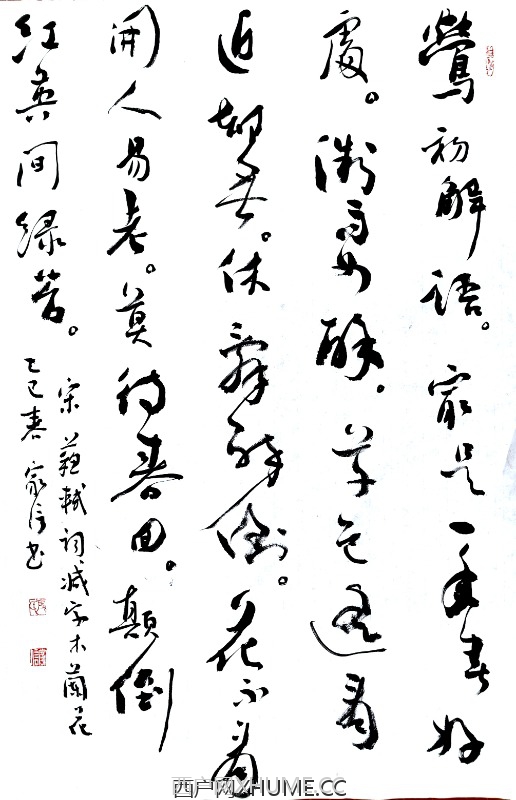 鶯初解语。最是一年春好
處。微雨如酥。草色遥看
近却無。休辞醉倒。花不看
開人易老。莫待春回。顛倒
红英间绿苔。
宋蘇軾词减字木蘭花
乙巳春家信书
西户网XHUME.CC